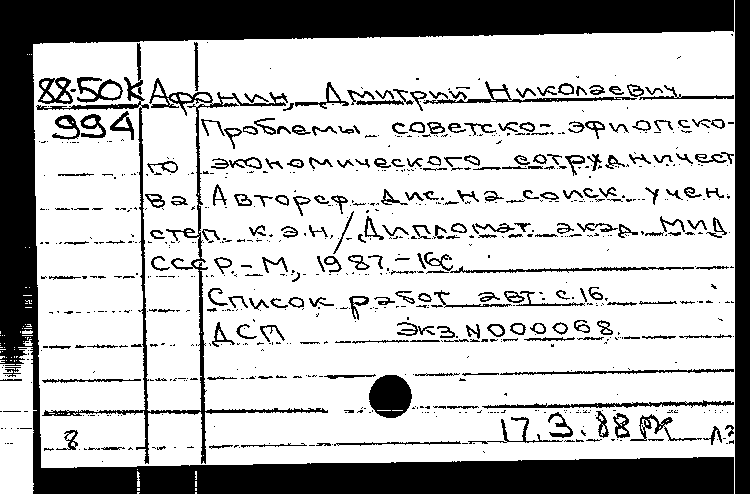 88-50К Афонин, Дмитрий Николаевич.
994 Проблемы советско-эфиопско-
го экономического сотрудничест
ва: Автореф. дис. на соиск. учен.
степ. к.э.н. / Дипломат. акад. МИД
СССР.-М., 1987.-16с.
Список работ авт.: с.16.
ДСП Экз.N000068.
17.3.88
8